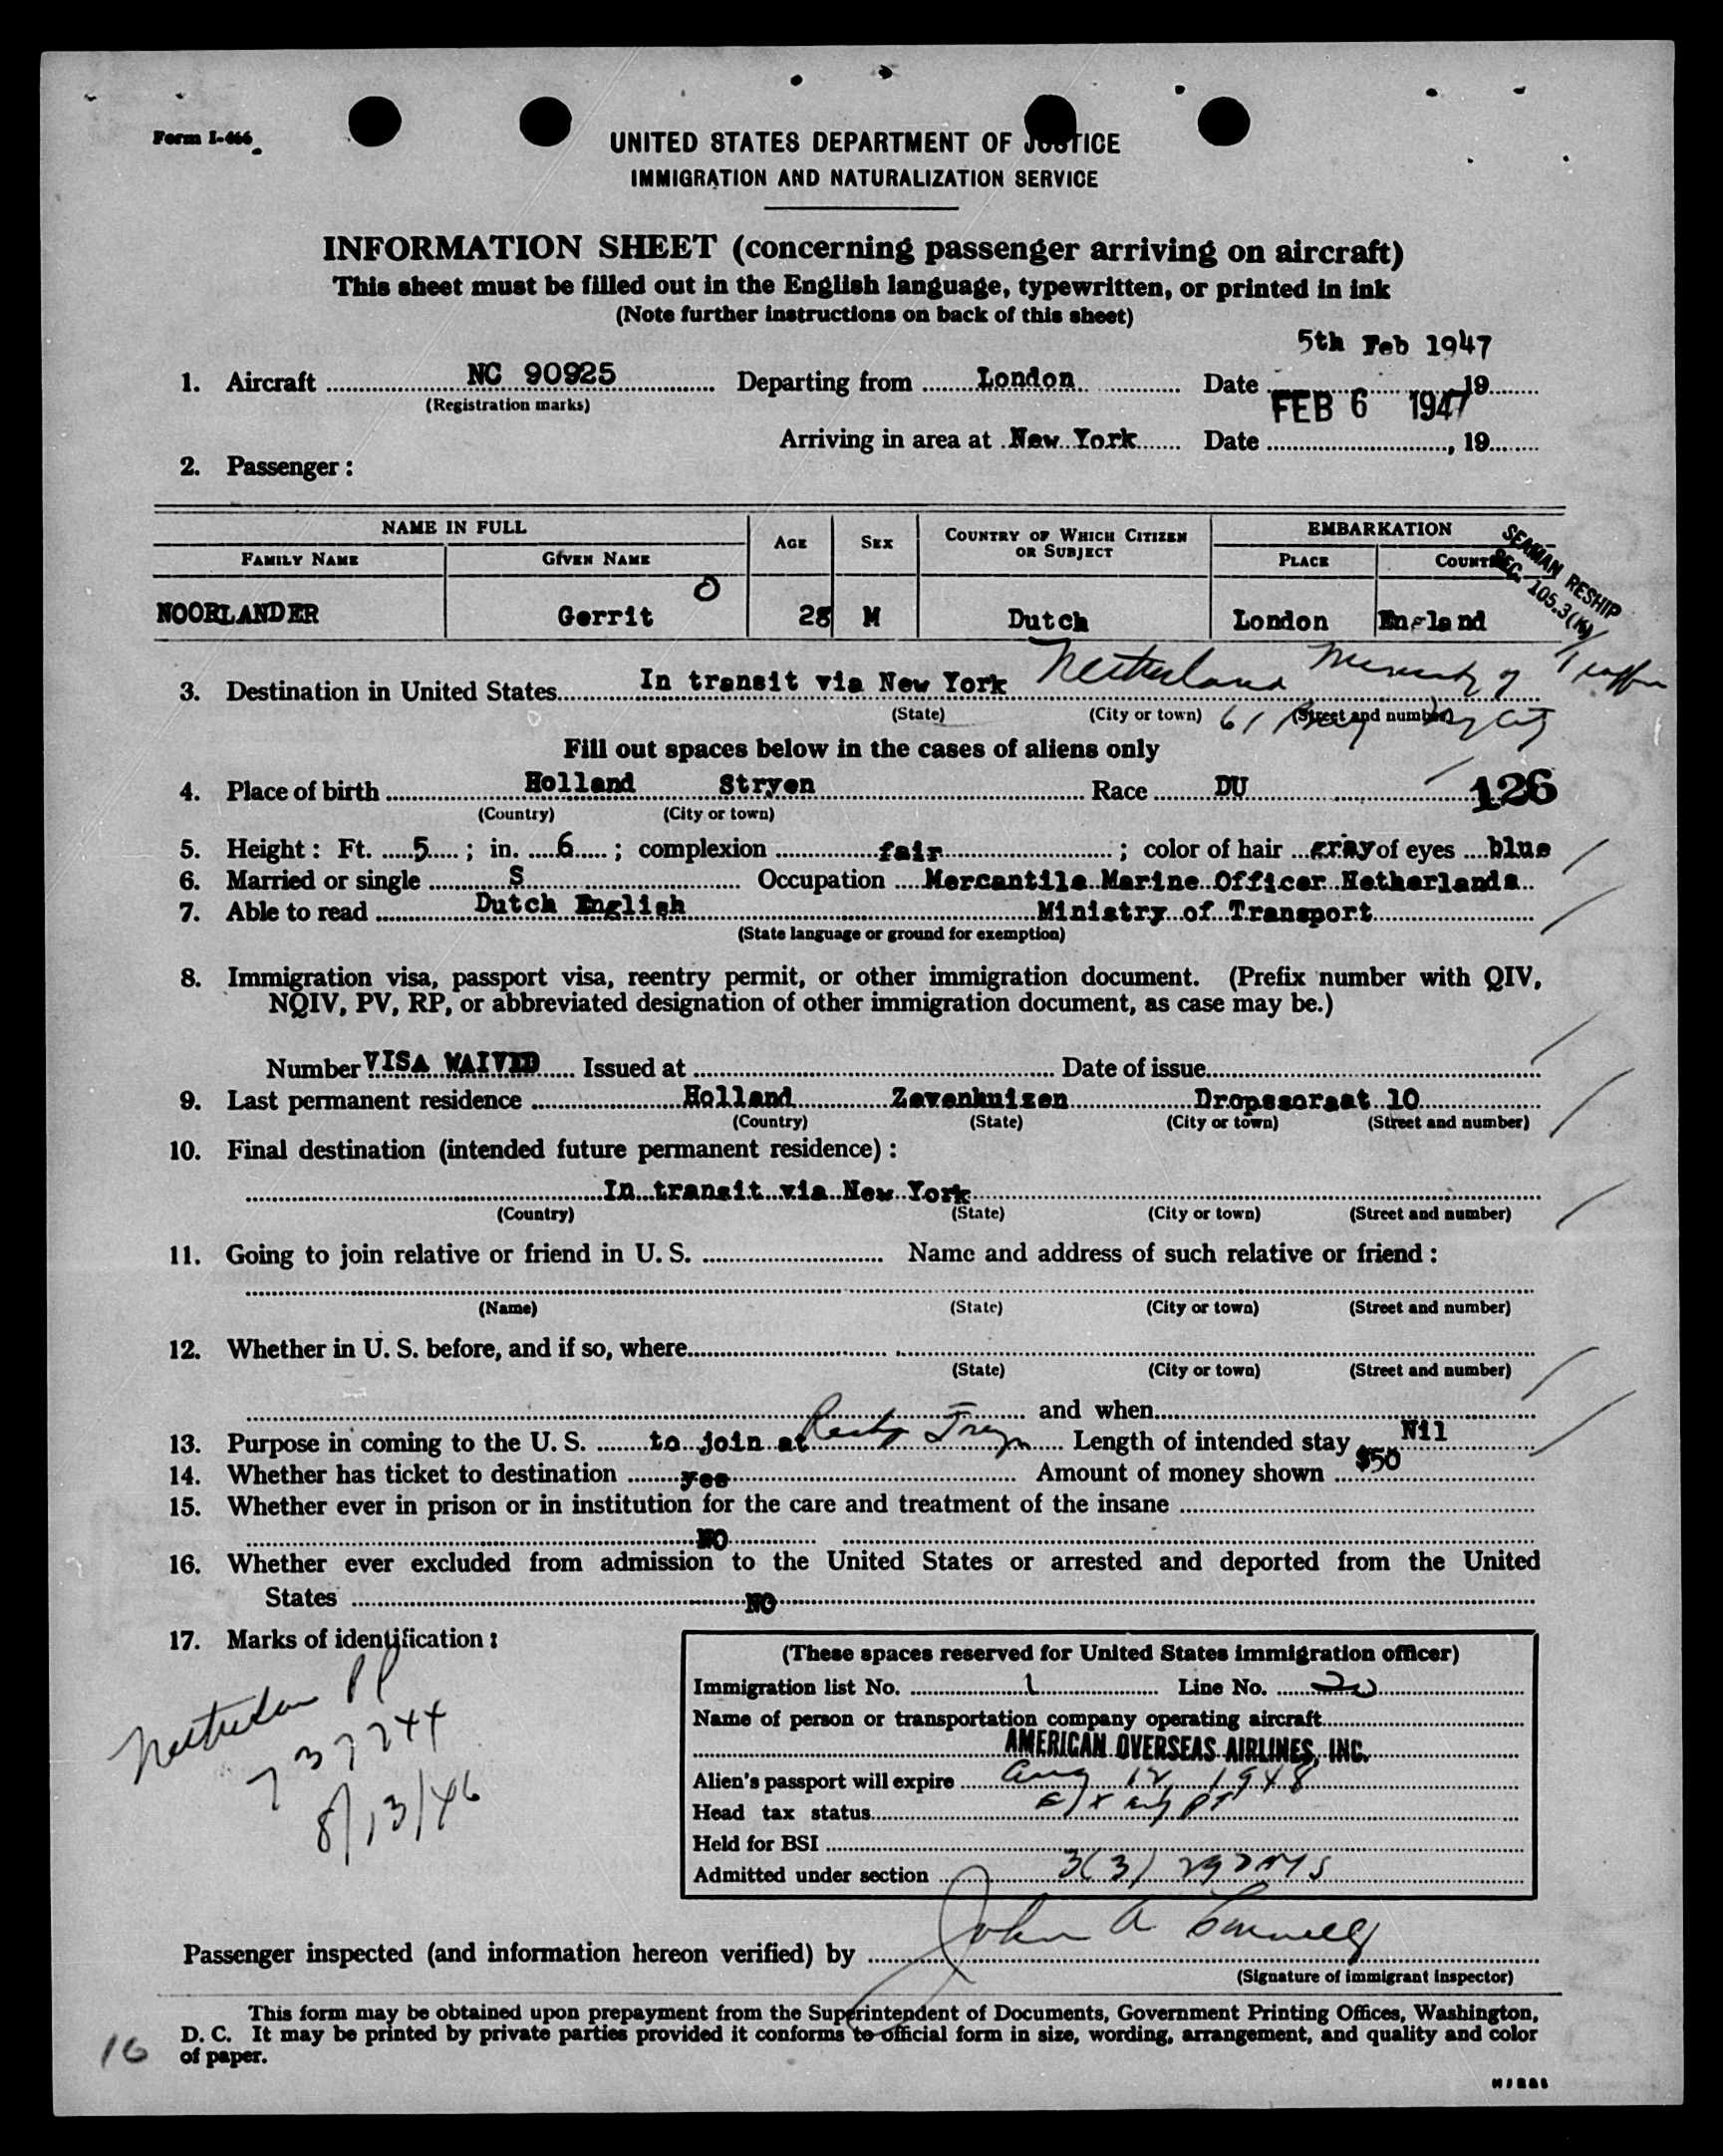 Form I-466
UNITED STATES DEPARTMENT OF JUSTICE
IMMIGRATION AND NATURALIZATION SERVICE
INFORMATION SHEET (concerning passenger arriving on aircraft)
This sheet must be filled out in the English language, typewritten, or printed in ink
(Note further instructions on back of this sheet)
5th Feb 1947
1. Aircraft NC 90925 Departing from London Date 19
(Registration marks)
FEB 6 1947
Arriving in area at New York Date , 19
2. Passenger:
NAME IN FULL AGE SEX COUNTRY OF WHICH CITIZEN OR SUBJECT EMBARKATION
FAMILY NAME GIVEN NAME PLACE COUNTRY
SEAMAN RESHIP
SEC. 105.3(K)
NOORLANDER Gerrit 28 M Dutch London England
3. Destination in United States In transit via New York Netherland Ministry of Traffic
(State) (City or town) (Street and number)
61 Bway NY City
Fill out spaces below in the cases of aliens only
4. Place of birth Holland Stryen Race DU 126
(Country) (City or town)
5. Height: Ft. 5; in. 6; complexion fair; color of hair gray of eyes blue
6. Married or single S Occupation Mercantile Marine Officer Netherlands
7. Able to read Dutch English Ministry of Transport
(State language or ground for exemption)
8. Immigration visa, passport visa, reentry permit, or other immigration document. (Prefix number with QIV,
NQIV, PV, RP, or abbreviated designation of other immigration document, as case may be.)
Number VISA WAIVED Issued at Date of issue
9. Last permanent residence Holland Zevenhuizen Dropssoraat 10
(Country) (State) (City or town) (Street and number)
10. Final destination (intended future permanent residence):
In transit via New York
(Country) (State) (City or town) (Street and number)
11. Going to join relative or friend in U. S. Name and address of such relative or friend:
(Name) (State) (City or town) (Street and number)
12. Whether in U. S. before, and if so, where
(State) (City or town) (Street and number)
and when
13. Purpose in coming to the U. S. to join at Length of intended stay Nil
14. Whether has ticket to destination yes Amount of money shown $50
15. Whether ever in prison or in institution for the care and treatment of the insane
NO
16. Whether ever excluded from admission to the United States or arrested and deported from the United
States NO
17. Marks of identification:
PP
737744
8/13/46
(These spaces reserved for United States immigration officer)
Immigration list No. 1 Line No. 20
Name of person or transportation company operating aircraft
AMERICAN OVERSEAS AIRLINES, INC.
Alien's passport will expire Aug 12, 1948
Head tax status
Held for BSI
Admitted under section 3(3)
Passenger inspected (and information hereon verified) by John A
(Signature of immigrant inspector)
This form may be obtained upon prepayment from the Superintendent of Documents, Government Printing Offices, Washington,
D. C. It may be printed by private parties provided it conforms to official form in size, wording, arrangement, and quality and color
of paper.
16